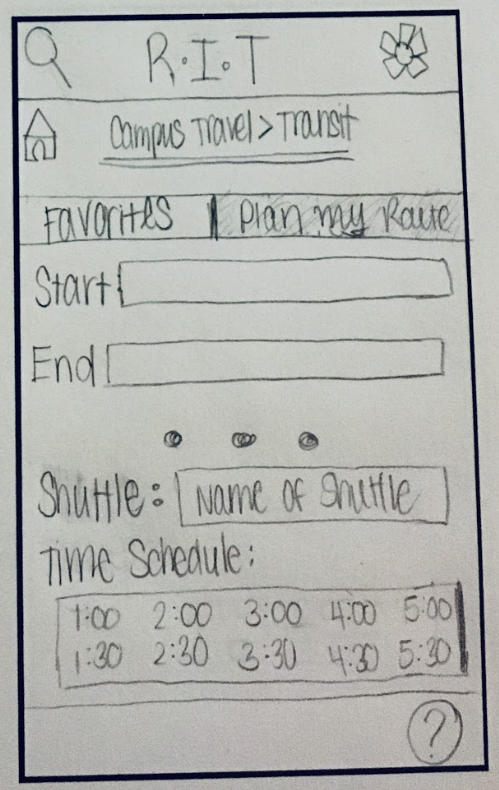 R.I.T
Campus Travel > Transit
Favorites | Plan my Route
Start
End
Shuttle: Name of Shuttle
Time Schedule:
1:00 2:00 3:00 4:00 5:00
1:30 2:30 3:30 4:30 5:30
?